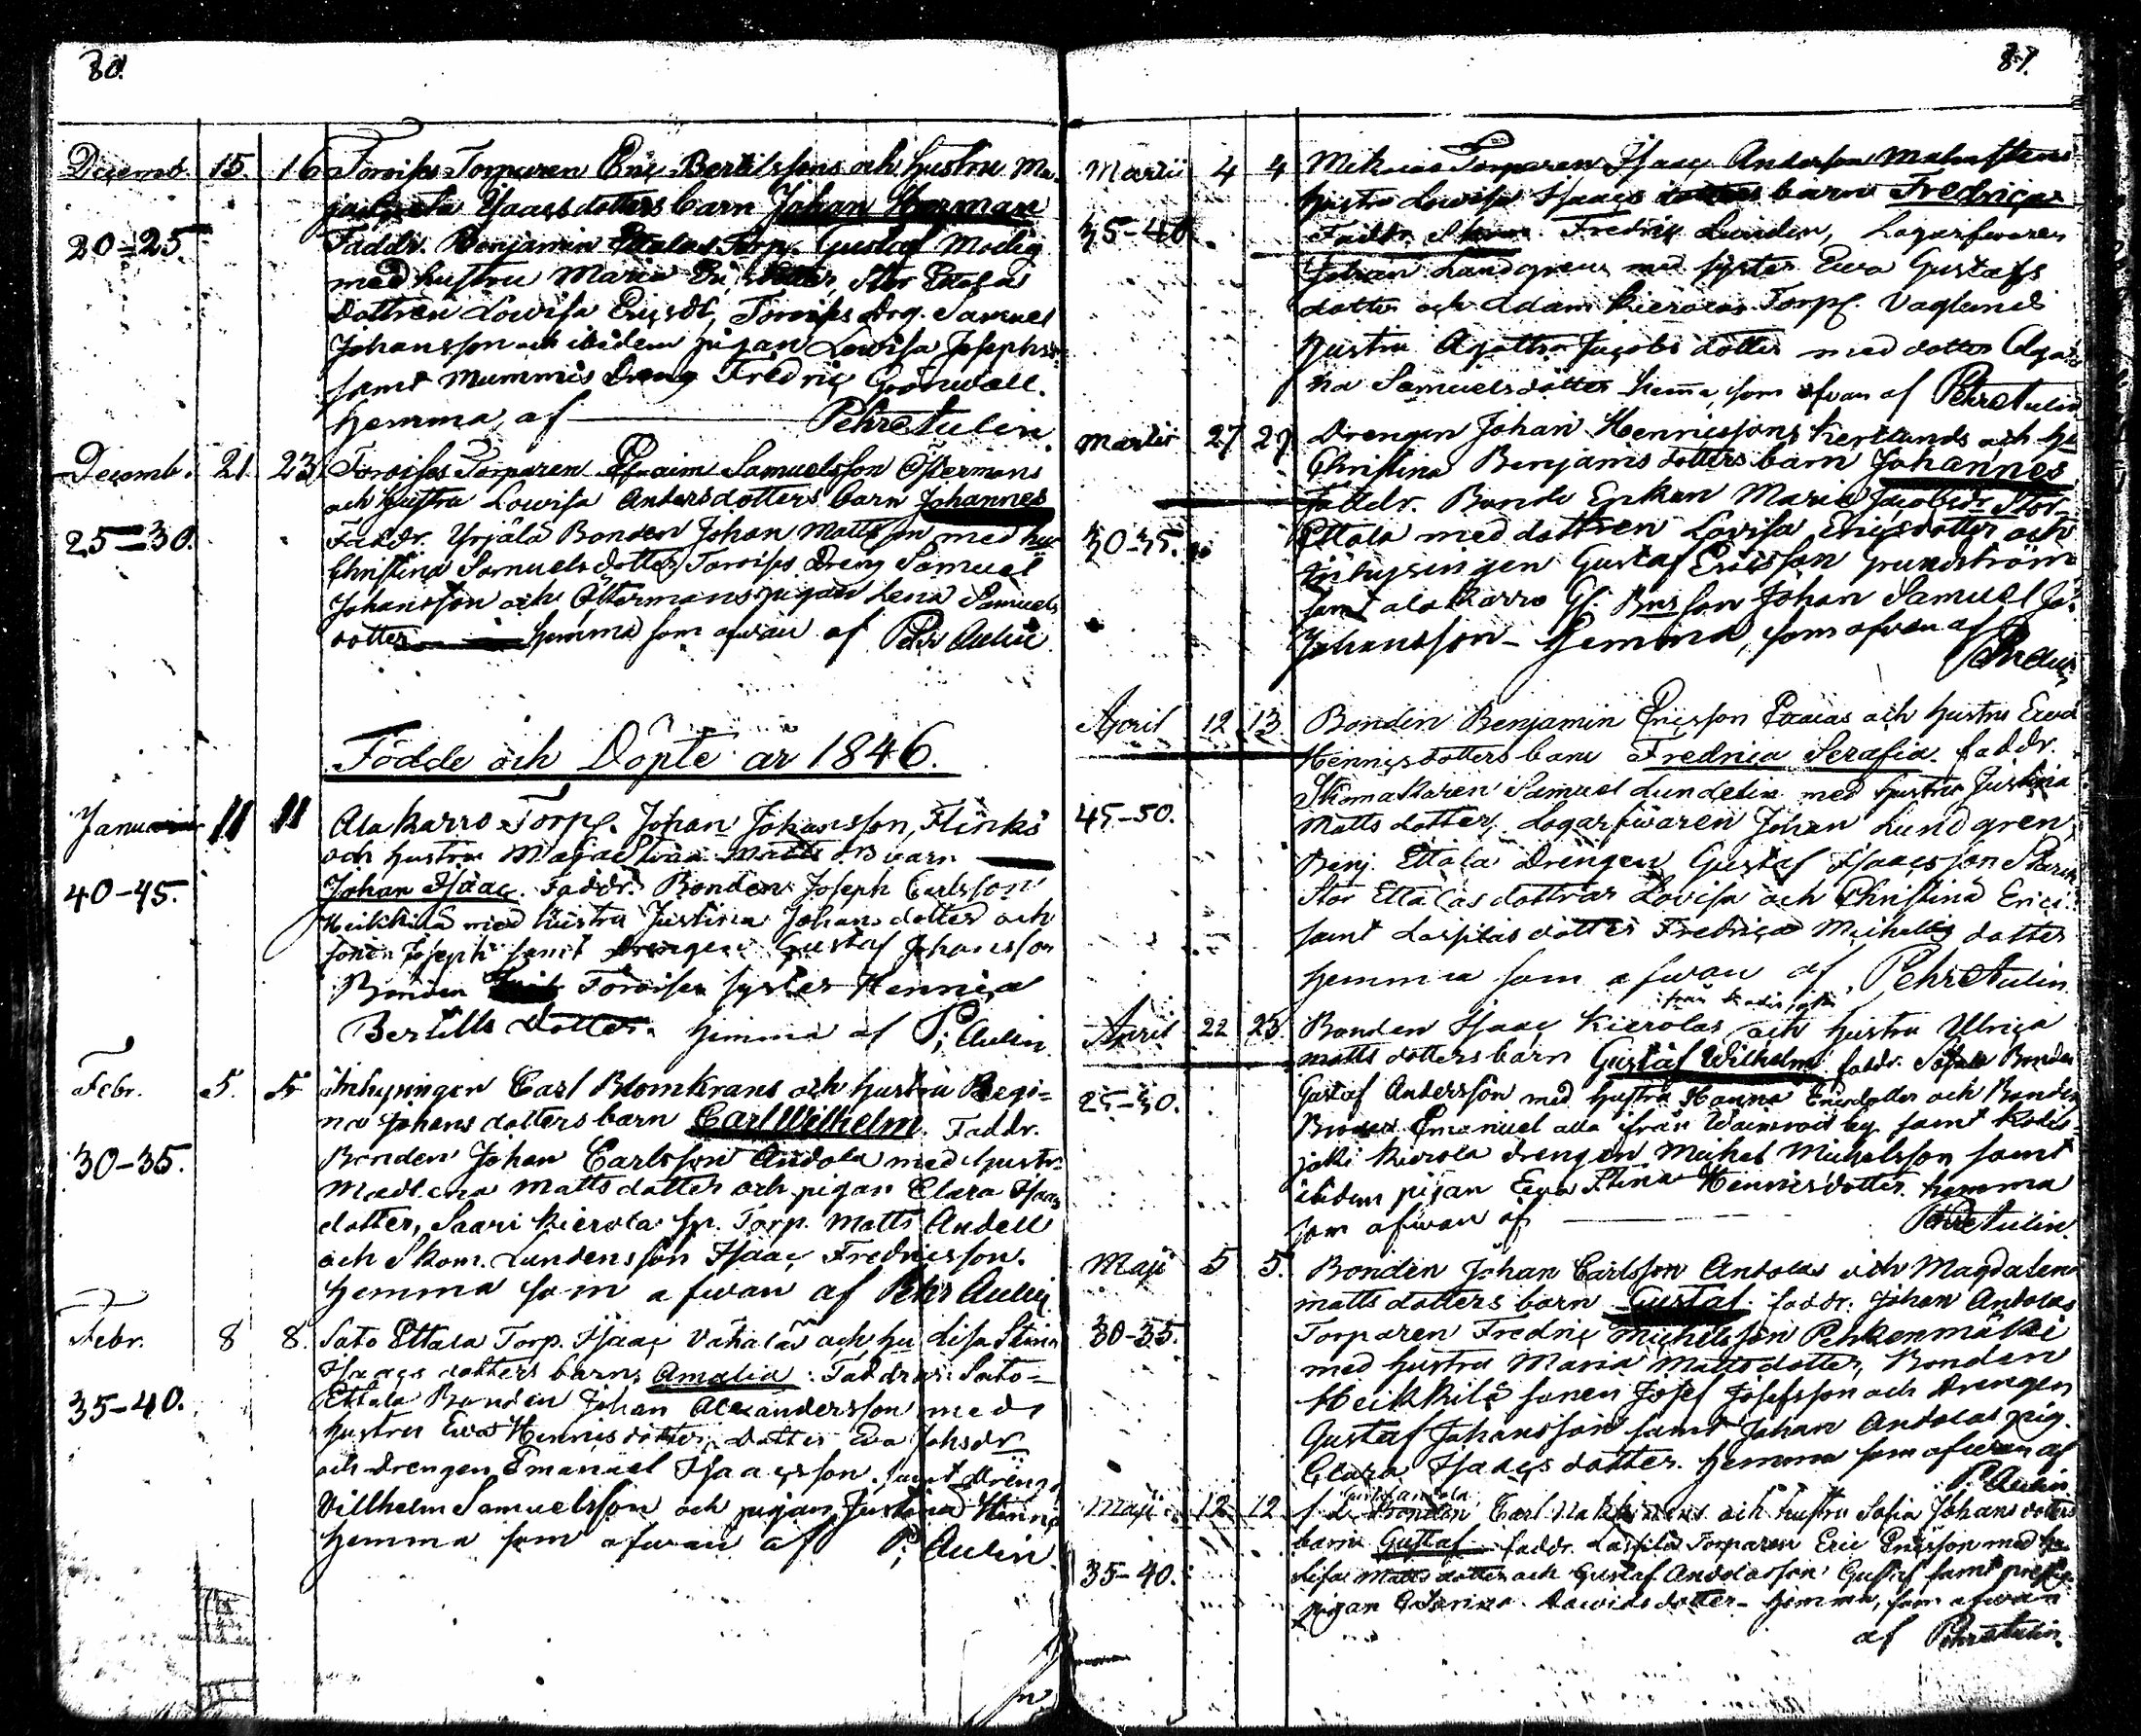 80.
Decemb. 15. 16 Toroises Torparen Eric Bertilssons och hustru Ma-
jagreta Isaacsdotters barn Johan Herman
20-25. Faddr. Benjamin Ettalas Torp. Gustaf Modig
med hustru Maria Stor Ettala
dottren Lowisa Ericsdr, Toroises drg. Samuel
Johansson och ibidem pigan Lowisa Josephs
samt Mummis dreng Fredric Grönwall.
hemma af Pehr Aulin
Decemb. 21. 23 Toroises Torparen Efraim Samuelsson Östermans
och hustru Lowisa Andersdotters barn Johannes
25-30. Faddr. Yrjälä Bonden Johan Mattsson med hu
Christina Samuelsdotter, Toroises Dreng Samuel
Johansson och Östermans pigan Lena Samuels
dotter hemma som ofwan af Pehr Aulin
Födde och Döpte år 1846.
Januari 11 11 Alakarro Torp. Johan Johansson, Flinks
och hustru Maja Stina Matts dr barn
40-45. Johan Isaac. Faddr. Bonden Joseph Carlsson
Heikkilä med hustru Justina Johansdotter och
sonen Joseph samt drengen Gustaf Johansson
Bonden Toroises syster Henrica
Bertills dotter. hemma af P. Aulin
Febr. 5. 5 Inhysingen Carl Blomkrans och hustru Regi-
na Johans dotters barn Carl Wilhelm. Faddr.
30-35. Bonden Johan Carlsson Andola med hustr.
Madlena Matts dotter och pigan Clara Isaacs
dotter, Saari Kierola sp. Torp. Matts Andell
och Skom. Lundens son Isaac Fredricsson.
hemma som ofwan af Pehr Aulin
Febr. 8 8. Sato Ettala Torp. Isaac Vähälä och hu Lisa Stina
Isaacs dotters barn Amalia. Faddrar: Sato-
35-40. Ettala Bonden Johan Alexandersson med
hustru Ewa Henricsdotter, dotter Eva Johsdr
och drengen Emanuel Isaacsson, samt dreng
Villhelm Samuelsson och pigan Justina Henric
hemma som ofwan af P. Aulin.
81.
Martii 4 4 Torparen Isaac Andersson Malmstens
hustru Lowisa Isaacs dotters barn Fredrica
35-40. Faddr. Fredric Lunden, Lagarfwaren
Johan Landgren med syster Ewa Gustafs
dotter och Adam Kierolas Torp. Vaglunds
hustru Agatha Jacobs dotter med dotter
Samuelsdotter hemma, som ofwan af Pehr Aulin
Martii 27 29 Drengen Johan Henricssons och hu
Christina Benjams dotters barn Johannes
Faddr. Bonde Enkan Maria Jacobsdr Stor-
30-35. Ettala med dottren Lovisa Ericsdotter och
Inhysingen Gustaf Ericsson Grundström
samt alakarro son Johan Samuel Jo.
Johansson - hemma, som ofwan af
P. Aulin
April 12 13 Bonden Benjamin Ericsson och hustru Ewa
Henricsdotters barn Fredrica Serafia. faddr.
Skomakaren Samuel Lundelin med hustru Justina
45-50. Matts dotter, Logarfwaren Johan Lundgren,
Benj. Ettala drengen Gustaf Isaacsson
Stor Ettalas dottrar Lovisa och Christina Erics.
samt Laspilas dotter Fredrica Michels dotter
hemma som ofwan af Pehr Aulin
April 22 23. Bonden Isaac Kierolas och hustru Ulrica
matts dotters barn Gustaf Wilhelm faddr. Bonden
25-30. Gustaf Andersson med hustru Hanna Ericsdotter och Bonden
Emanuel alla ifrån by samt Kodis-
joki Kierola drengen Michel Michelsson samt
ibidem pigan Eva Stina Henricsdotter. hemma
som ofwan af Pehr Aulin.
Maji 5 5. Bonden Johan Carlsson Andolas och Magdalena
matts dotters barn Gustaf. faddr. Johan Andolas
30-35. Torparen Fredric Michelsson Pehkenmäki
med hustru Maria Mattsdotter, Bonden
Heikkilä sonen Josef Josefsson och Drengen
Gustaf Johansson samt Johan Andolas pig.
Clara Isaacs dotter. hemma som ofwan af
P. Aulin
Maji 12 12 Bonden Carl och hustru Sofia Johansdotters
barn Gustaf faddr. Laspila Torparen Eric Ericsson med hu
35-40. Lisa Mattsdotter och Gustaf Andolas son Gustaf samt
pigan Davidsdotter - hemma, som ofwan
af Pehr Aulin